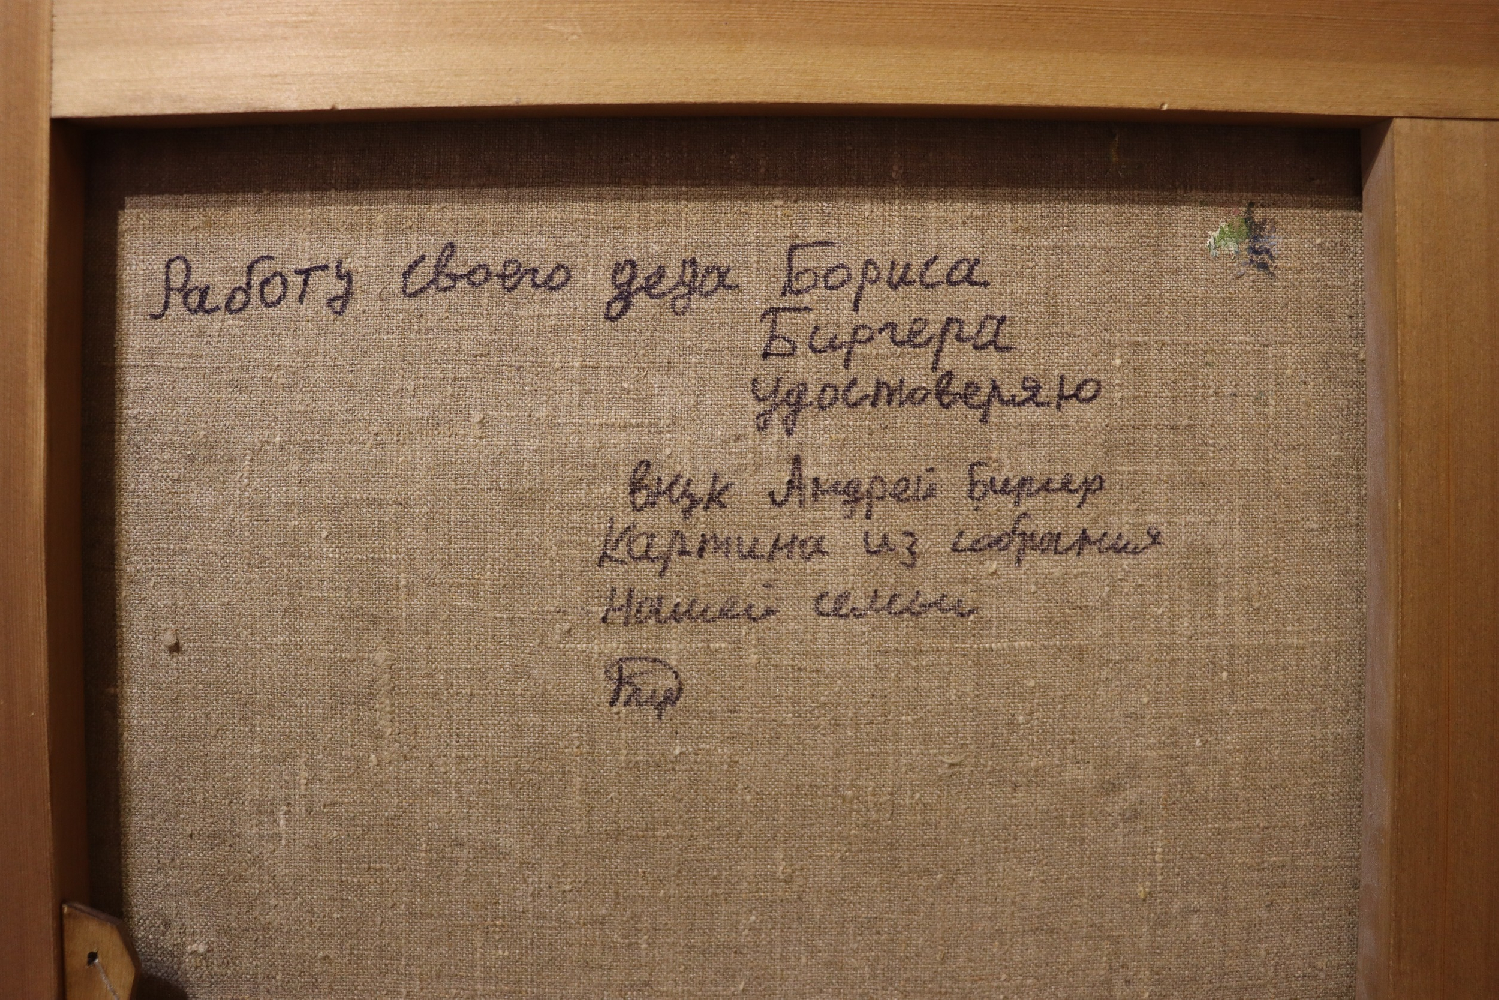 Работу своего деда Бориса
Биргера
удостоверяю
внук Андрей Биргер
Картина из собрания
Нашей семьи